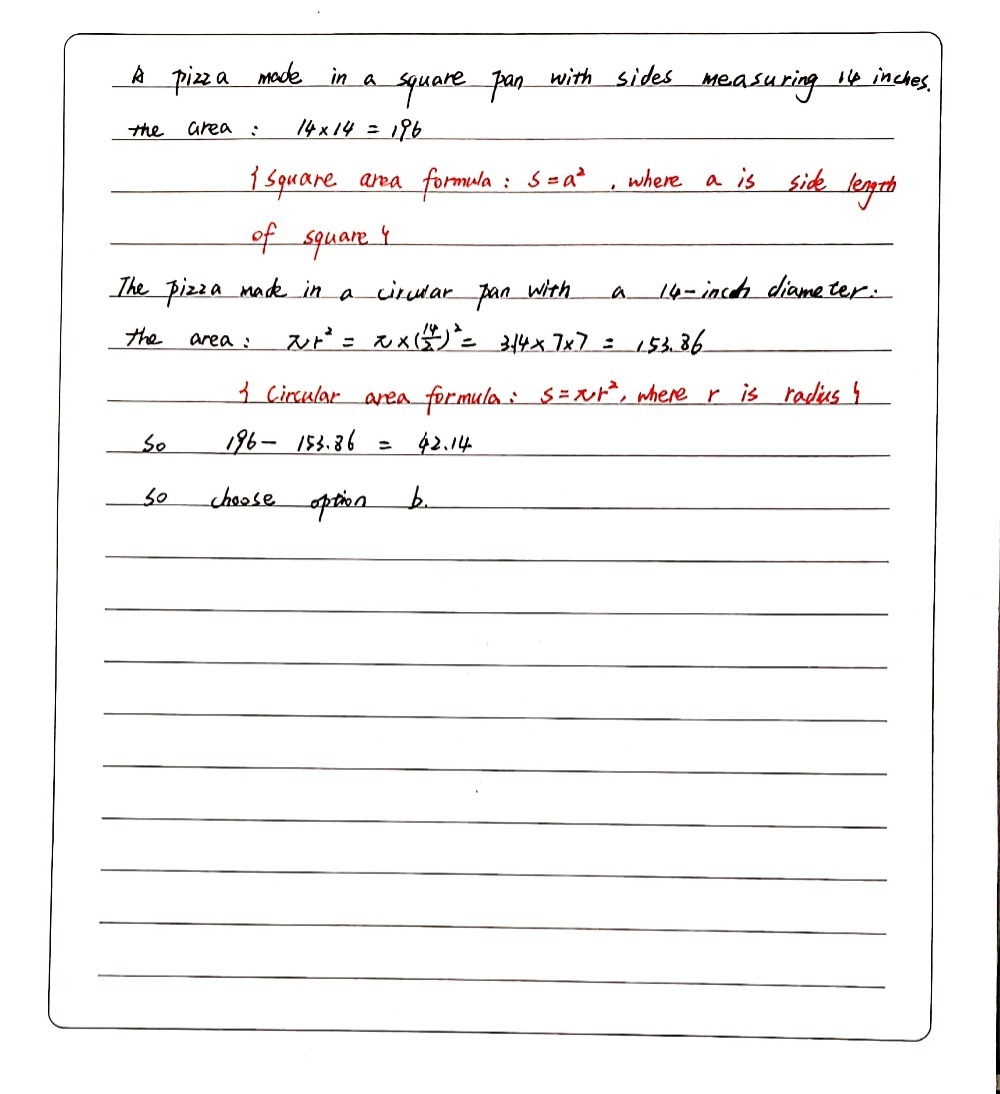 A pizza made in a square pan with sides measuring 14 inches.
the area : 14×14 = 196
{ square area formula : S=a², where a is side length
of square }
The pizza made in a circular pan with a 14-inch diameter:
the area : πr² = π×(14/2)² = 3.14×7×7 = 153.86
{ Circular area formula : S=πr², where r is radius }
So 196 - 153.86 = 42.14
so choose option b.